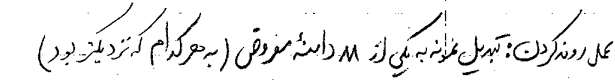 عمل روند کردن: تبدیل نمونه به یکی از M دامنهٔ مفروض (به هر کدام که نزدیکتر بود)